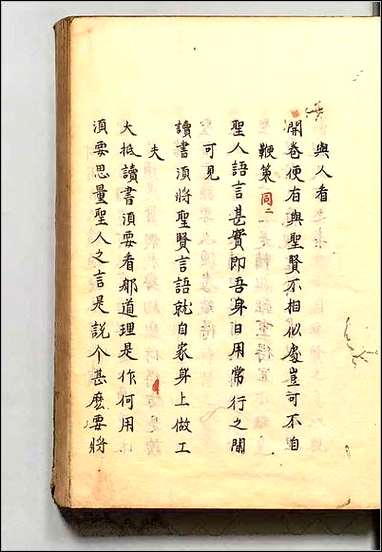 與人看
開卷便有與聖賢不相似處豈可不自
鞭策同二
聖人語言甚實即吾身日用常行之間
可見
讀書須將聖賢言語就自家身上做工
夫
大抵讀書須要看那道理是作何用
須要思量聖人之言是說个甚麽要將